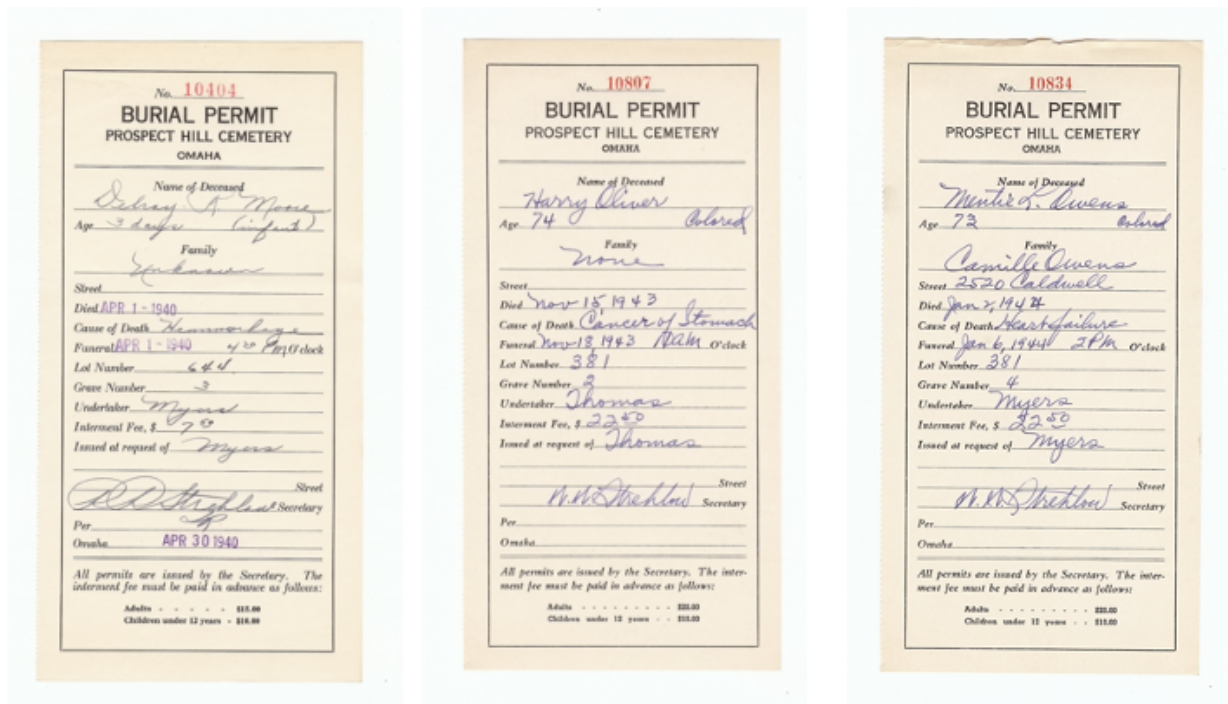 No. 10404
BURIAL PERMIT
PROSPECT HILL CEMETERY
OMAHA
Name of Deceased
Delray R Moore
Age 3 days (infant)
Family
Unknown
Street
Died APR 1 - 1940
Cause of Death Hemmorhage
Funeral APR 1 - 1940 4 00 PM O'clock
Lot Number 644
Grave Number 3
Undertaker Myers
Interment Fee, $ 7 00
Issued at request of Myers
Street
Secretary
Per
Omaha APR 30 1940
All permits are issued by the Secretary. The
interment fee must be paid in advance as follows:
Adults - - - - - $15.00
Children under 12 years - $10.00
No. 10807
BURIAL PERMIT
PROSPECT HILL CEMETERY
OMAHA
Name of Deceased
Harry Oliver
Age 74 Colored
Family
None
Street
Died Nov 15, 1943
Cause of Death Cancer of Stomach
Funeral Nov 18, 1943 10AM O'clock
Lot Number 381
Grave Number 3
Undertaker Thomas
Interment Fee, $ 22 50
Issued at request of Thomas
Street
W.W. Strehlow Secretary
Per
Omaha
All permits are issued by the Secretary. The inter-
ment fee must be paid in advance as follows:
Adults - - - - - - - - -
Children under 12 years - -
No. 10834
BURIAL PERMIT
PROSPECT HILL CEMETERY
OMAHA
Name of Deceased
Mentie L. Owens
Age 73 Colored
Family
Camille Owens
Street 2520 Caldwell
Died Jan 2, 1944
Cause of Death Heart failure
Funeral Jan 6, 1944 2PM O'clock
Lot Number 381
Grave Number 4
Undertaker Myers
Interment Fee, $ 22 50
Issued at request of Myers
Street
W.W. Strehlow Secretary
Per
Omaha
All permits are issued by the Secretary. The inter-
ment fee must be paid in advance as follows:
Adults - - - - - - - - -
Children under 12 years - -